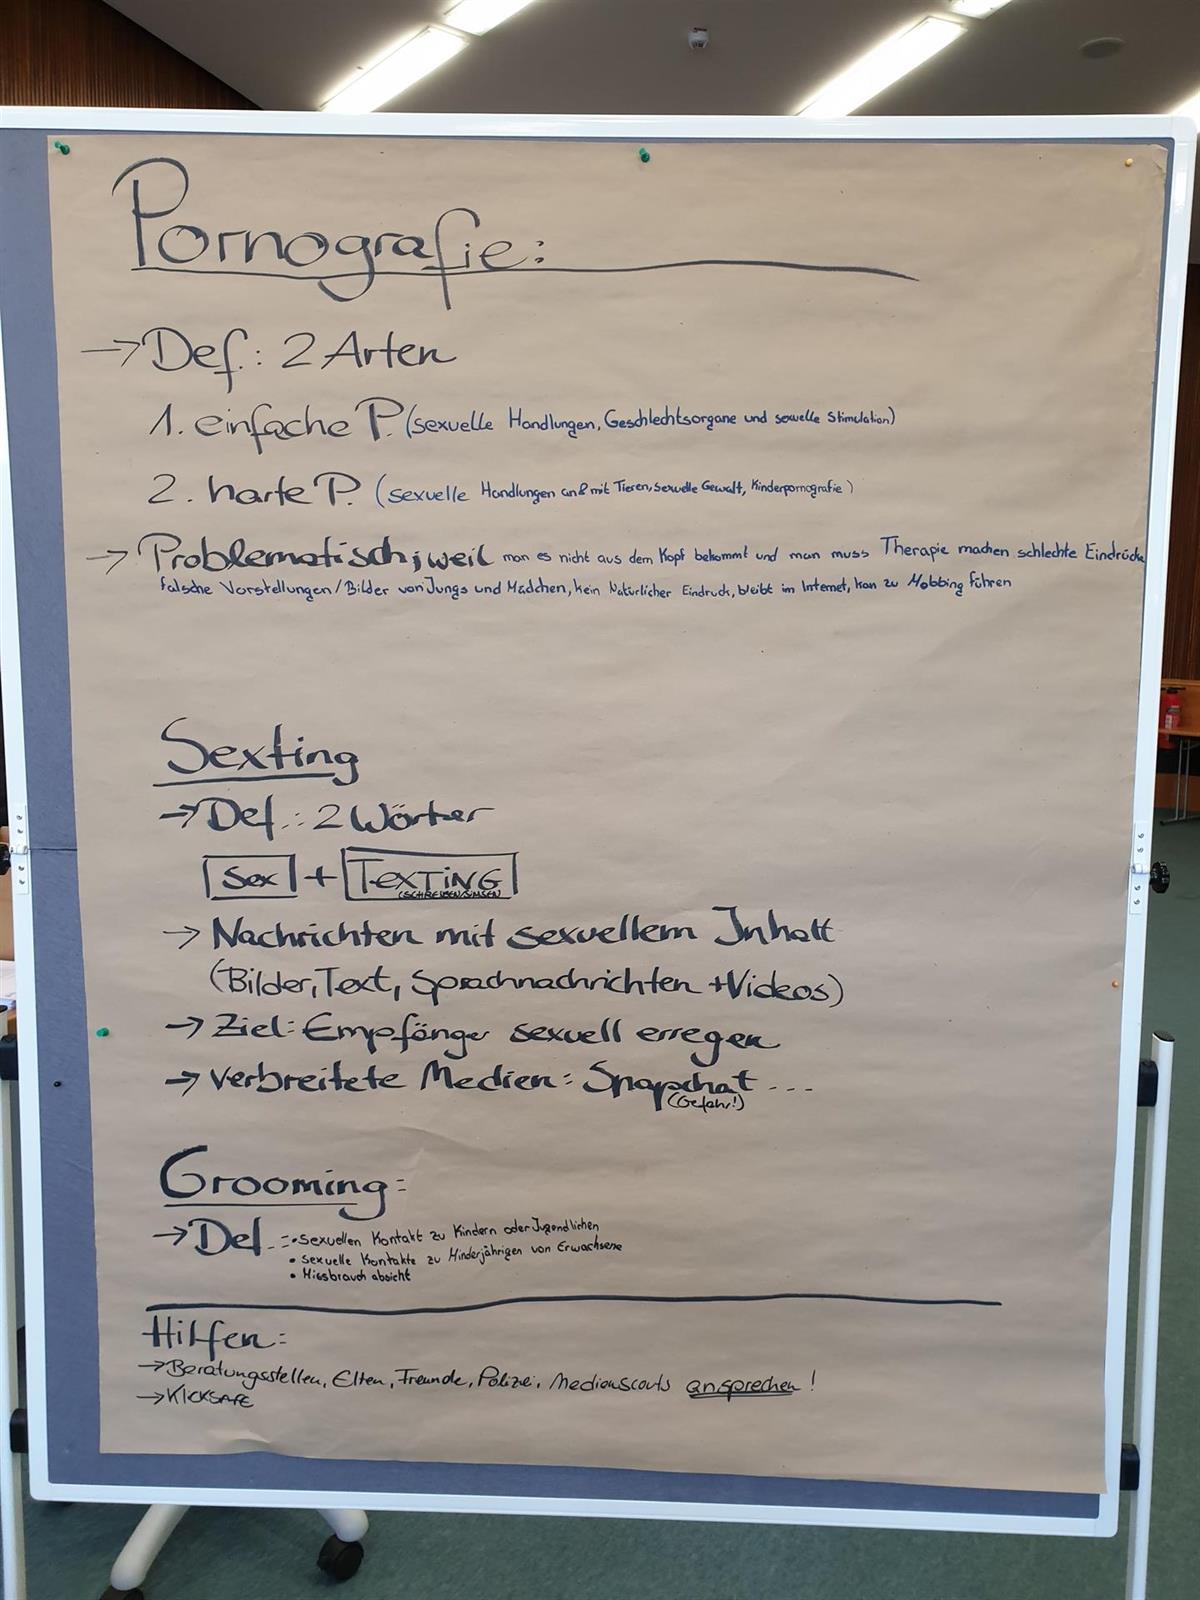 Pornografie:
→ Def.: 2 Arten
1. einfache P. (sexuelle Handlungen, Geschlechtsorgane und sexuelle Stimulation)
2. harte P. (sexuelle Handlungen an & mit Tieren, sexuelle Gewalt, Kinderpornografie)
→ Problematisch, weil man es nicht aus dem Kopf bekommt und man muss Therapie machen schlechte Eindrücke
falsche Vorstellungen/Bilder von Jungs und Mädchen, kein Natürlicher Eindruck, bleibt im Internet, kan zu Mobbing führen
Sexting
→ Def.: 2 Wörter
Sex + TEXTING
(SCHREIBEN/SIMSEN)
→ Nachrichten mit sexuellem Inhalt
(Bilder, Text, Sprachnachrichten + Videos)
→ Ziel: Empfänger sexuell erregen
→ verbreitete Medien: Snapchat ...
(Gefahr!)
Grooming:
→ Def.: • sexuellen Kontakt zu Kindern oder Jugendlichen
• sexuelle Kontakte zu Minderjährigen von Erwachsene
• Missbrauch absicht
Hilfen:
→ Beratungsstellen, Elten, Freunde, Polizei, Medienscouts ansprechen!
→ KlickSAFE